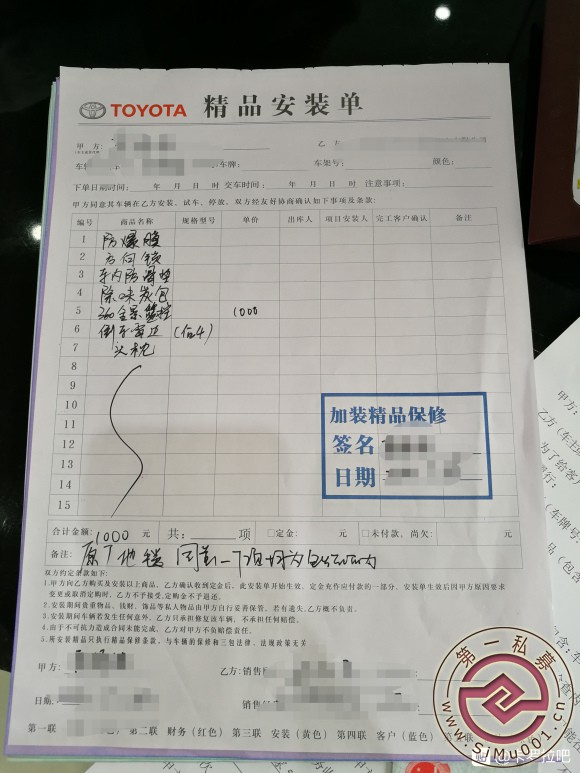 TOYOTA 精品安装单
甲 方:
乙 方
车牌: 车架号: 颜色:
下单日期时间: 年 月 日 时 交车时间: 年 月 日 时 注意事项:
甲方同意其车辆在乙方安装、试车、停放。双方经友好协商确认如下事项及条款:
编号 商品名称 规格型号 单价 出库人 项目安装人 完工客户确认 备注
1 防爆膜
2 方向锁
3 车内防滑垫
4 除味炭包
5 360全景 1000
6 倒车雷达 (前4)
7 头枕
8
9
10
11
12
13
14
15
加装精品保修
签名
日期
合计金额: 1000 元 共: 项 □定金: 元 □未付款、尚欠: 元
备注: 原厂地毯
双方约定条款如下:
1.甲方向乙方购买及安装以上商品, 乙方确认收到定金后, 此安装单开始生效, 定金充作应付款的一部分, 安装单生效后因甲方原因要求
变更或取消定购时, 乙方不予接受,定购金不予退还。
2.安装期间贵重物品、钱财、饰品等私人物品由甲方自行妥善保管。若有遗失,乙方概不负责。
3.安装期间车辆若发生任何意外, 乙方只承担修复该车辆, 不承担任何赔偿。
4.由于不可抗力造成合同未能完成, 乙方对甲方不负赔偿责任。
5.所安装精品只执行精品保修条款, 与车辆的保修和三包法律、法规政策无关
甲方: 乙方: 销售
日期: 销售
第一联 第二联 财务(红色) 第三联 安装(黄色) 第四联 客户(蓝色)
甲方:
乙方(车主
为了给客户
(车牌号
第一私募
www.SiMu001.cn
卡罗拉吧